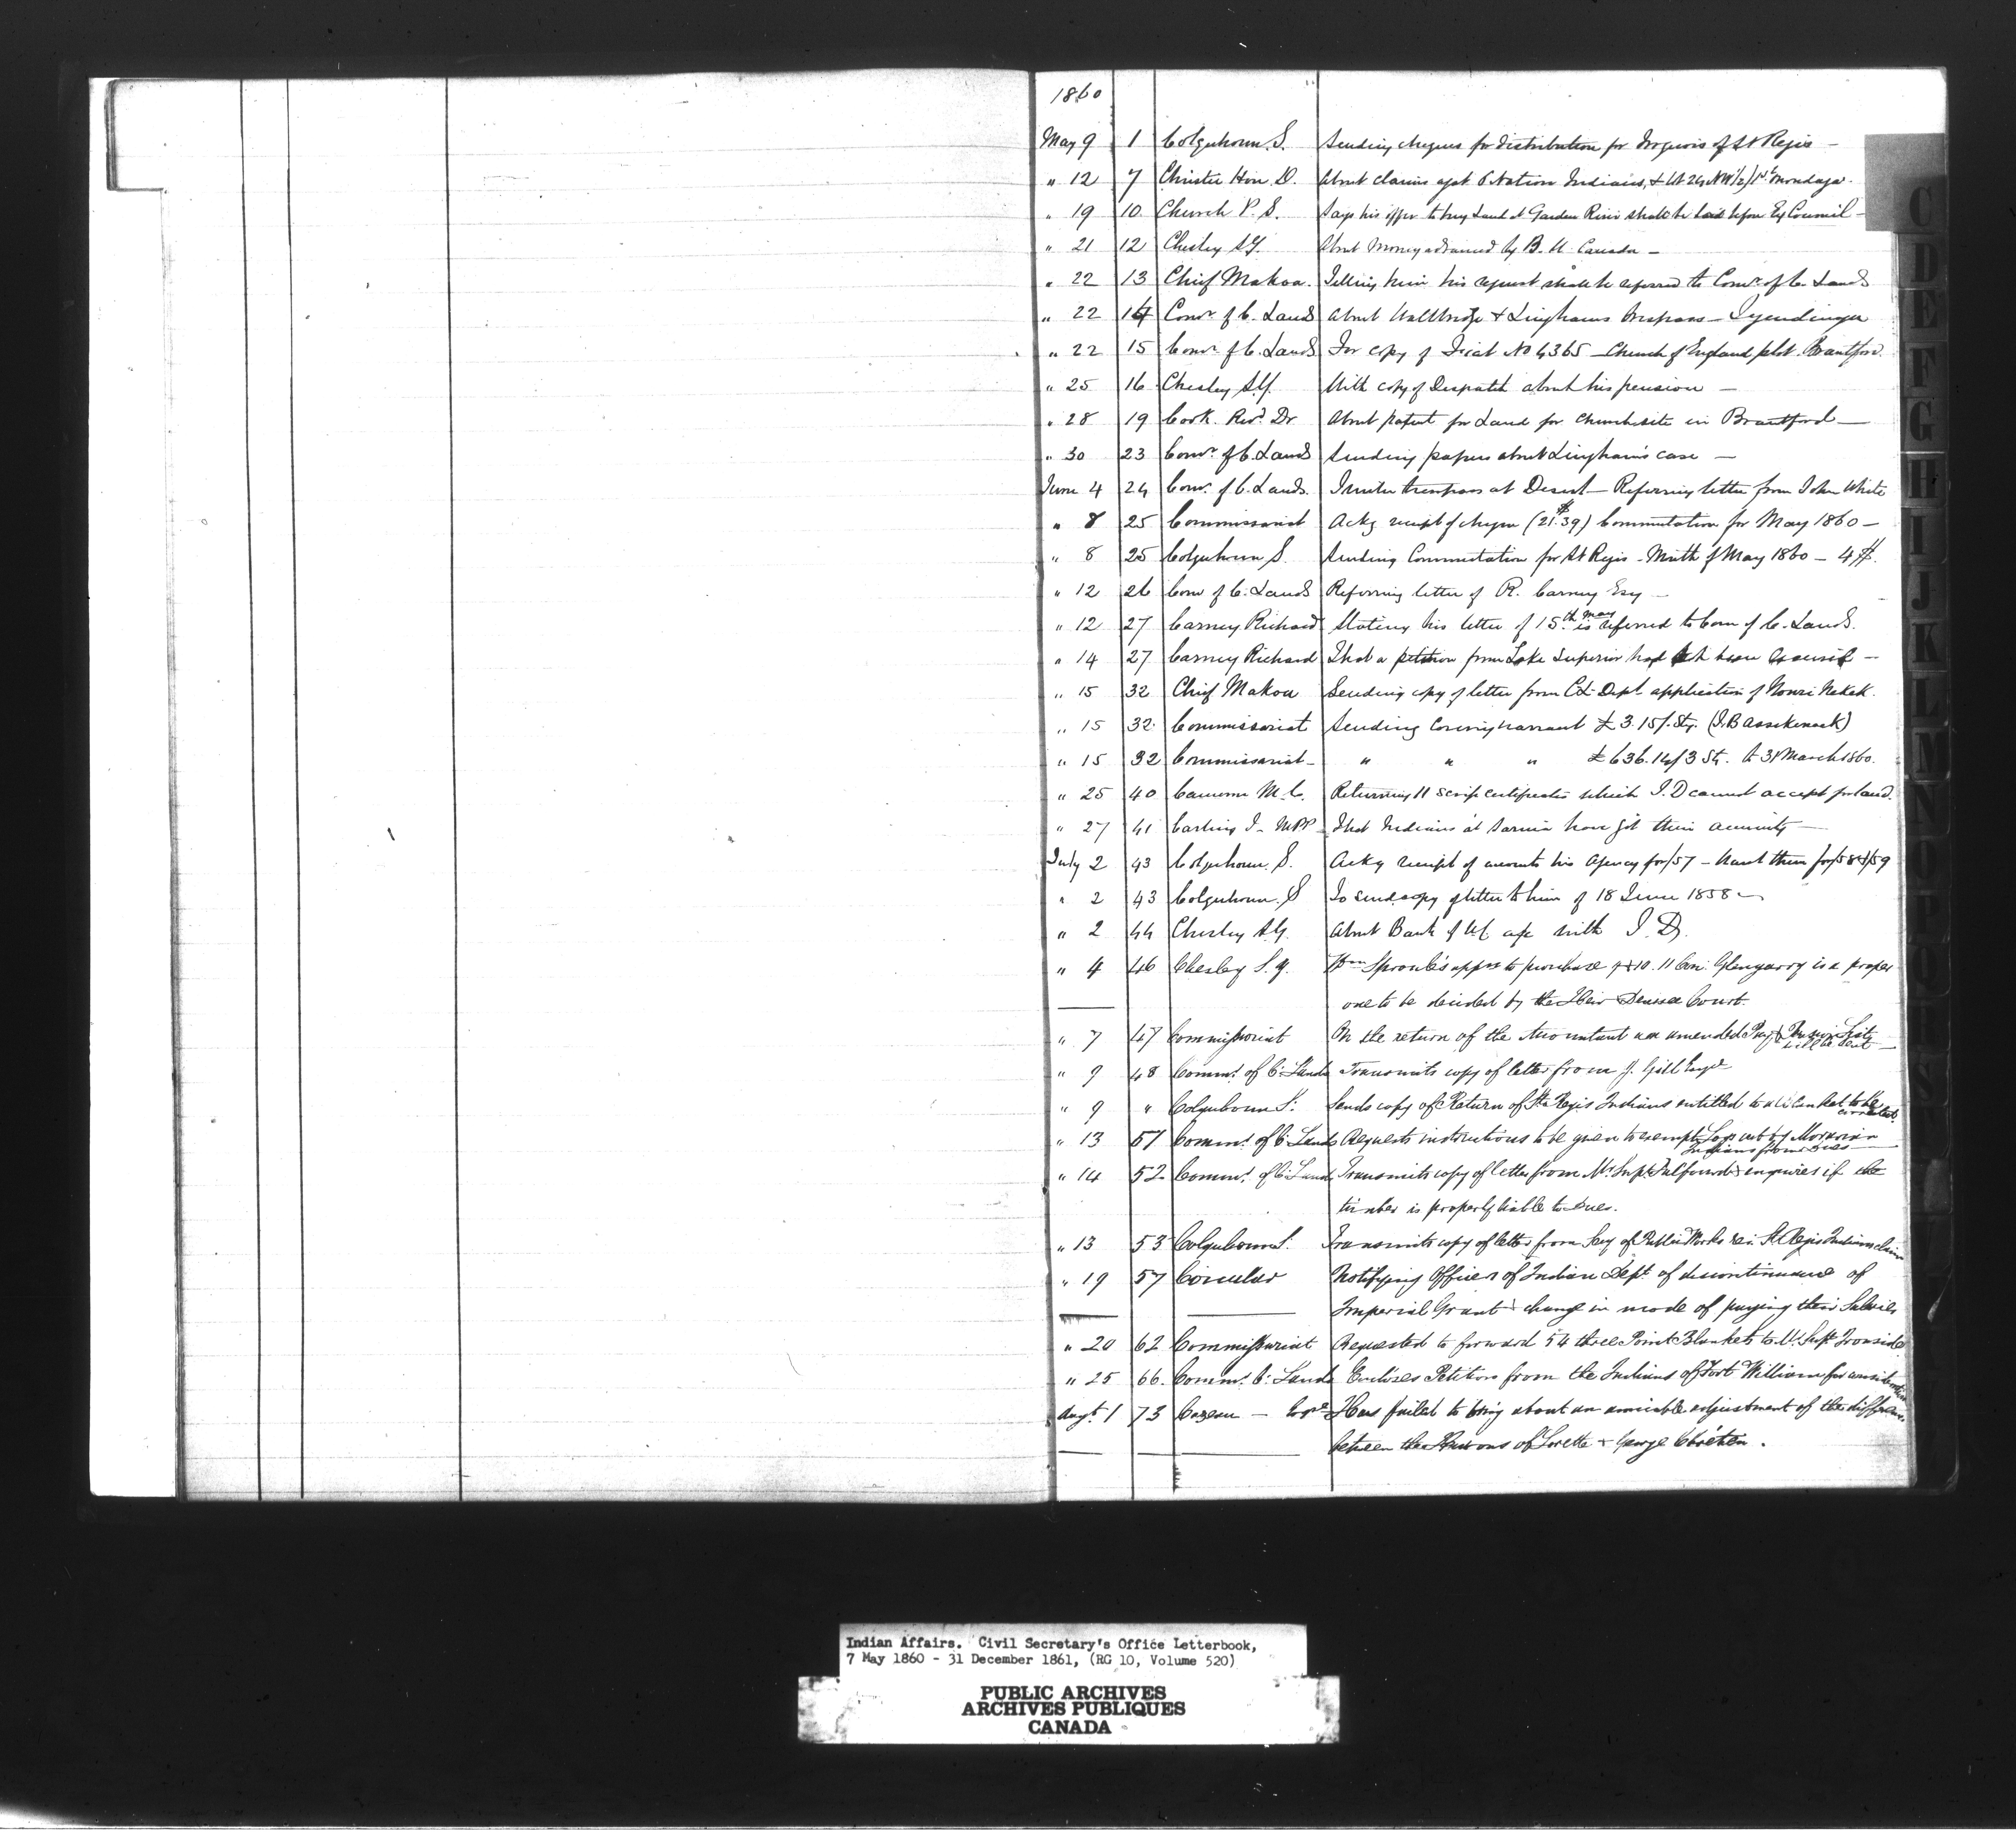 1860
May 9 1 Colquhoun S. Sending cheques for distribution for Iroquois of St Regis —
" 12 7 Christie Hon. D. About claims agst 6 Nation Indians, & Lt 24 NW 1/2
" 19 10 Church P. S. Says his offer to buy Land at Garden River shall be laid before Ex Council —
" 21 12 Chesley S.Y. About Money advanced by B. U. Canada —
" 22 13 Chief Makoa. Telling him his request shall be referred to Comr of C. Lands
" 22 14 Comr of C. Lands About Wallbridge & Linghams trespass — Tyendinaga
" 22 15 Comr of C. Lands For copy of Fiat No 4365 — Church of England plot. Brantford.
" 25 16 Chesley S.Y. With copy of Despatch about his pension —
" 28 19 Cook Revd Dr About patent for Land for Church site in Brantford —
" 30 23 Comr of C. Lands Sending papers about Lingham's case —
June 4 24 Comr of C. Lands. trespass at Desert — Referring letter from John White
" 8 25 Commissariat Ackg receipt of cheque (21.$39) Commutation for May 1860 —
" 8 25 Colquhoun S. Sending Commutation for St Regis — Month of May 1860 — 4 $.
" 12 26 Com of C. Lands Referring letter of R. Carney Esq —
" 12 27 Carney Richard Stating his letter of 15.th May is referred to Com of C. Lands.
" 14 27 Carney Richard That a petition from Lake Superior had been
" 15 32 Chief Makoa Sending copy of letter from C.L. Dept application of
" 15 32 Commissariat Sending Covering warrant £ 3.15/. Stg. (J.B Assikinack)
" 15 32 Commissariat — " " " £636.14/3 St. to 31 March 1860.
" 25 40 Cameron M. C. Returning 11 scrip certificates which I.D cannot accept for land.
" 27 41 Carling J — MPP — That Indians at Sarnia have got their annuity —
July 2 43 Colquhoun. S. Ackg receipt of accounts his agency for/57 — Want them for/58 &/59
" 2 43 Colquhoun. S To send copy of letter to him of 18 June 1858 —
" 2 44 Chesley S.Y. About Bank of U.C. a/c with I. D.
" 4 46 Chesley S. Y. Wm Sproule's appn to purchase 9 & 10. 11 Con. Glengarry is a proper
one to be decided by the Heir & Devisee Court.
" 7 47 Commissariat On the return of the Accountant an amended Pay & Pension List
will be sent —
" 9 48 Commr of C. Lands Transmits copy of letter from J. Gill Esqre
" 9 " Colquhoun S. Sends copy of Return of St Regis Indians entitled to a blanket to be
corrected.
" 13 51 Commr of C. Lands Requests instructions to be given to exempt Logs cut by Moravian
Indians from dues —
" 14 52 Commr of C. Lands Transmits copy of letter from Mr Supt Talfourd & enquires if the
timber is properly liable to dues.
" 13 53 Colquhoun S. Transmits copy of letter from Secy of Public Works re: St Regis Indians claim
" 19 57 Circular Notifying Officers of Indian Dept. of discontinuance of
Imperial Grant & change in mode of paying their Salaries
" 20 62 Commissariat Requested to forward 54 three Point Blankets to Mr Supt Ironside
" 25 66. Commr C. Lands Encloses Petition from the Indians of Fort William for consideration
Augt 1 73 Cazeau — Has failed to bring about an amicable adjustment of the differences
between the Hurons of Lorette & George Chretien.
C
D
E
F
G
H
I
J
K
L
M
N
O
P
Q
Indian Affairs. Civil Secretary's Office Letterbook,
7 May 1860 - 31 December 1861, (RG 10, Volume 520)
PUBLIC ARCHIVES
ARCHIVES PUBLIQUES
CANADA